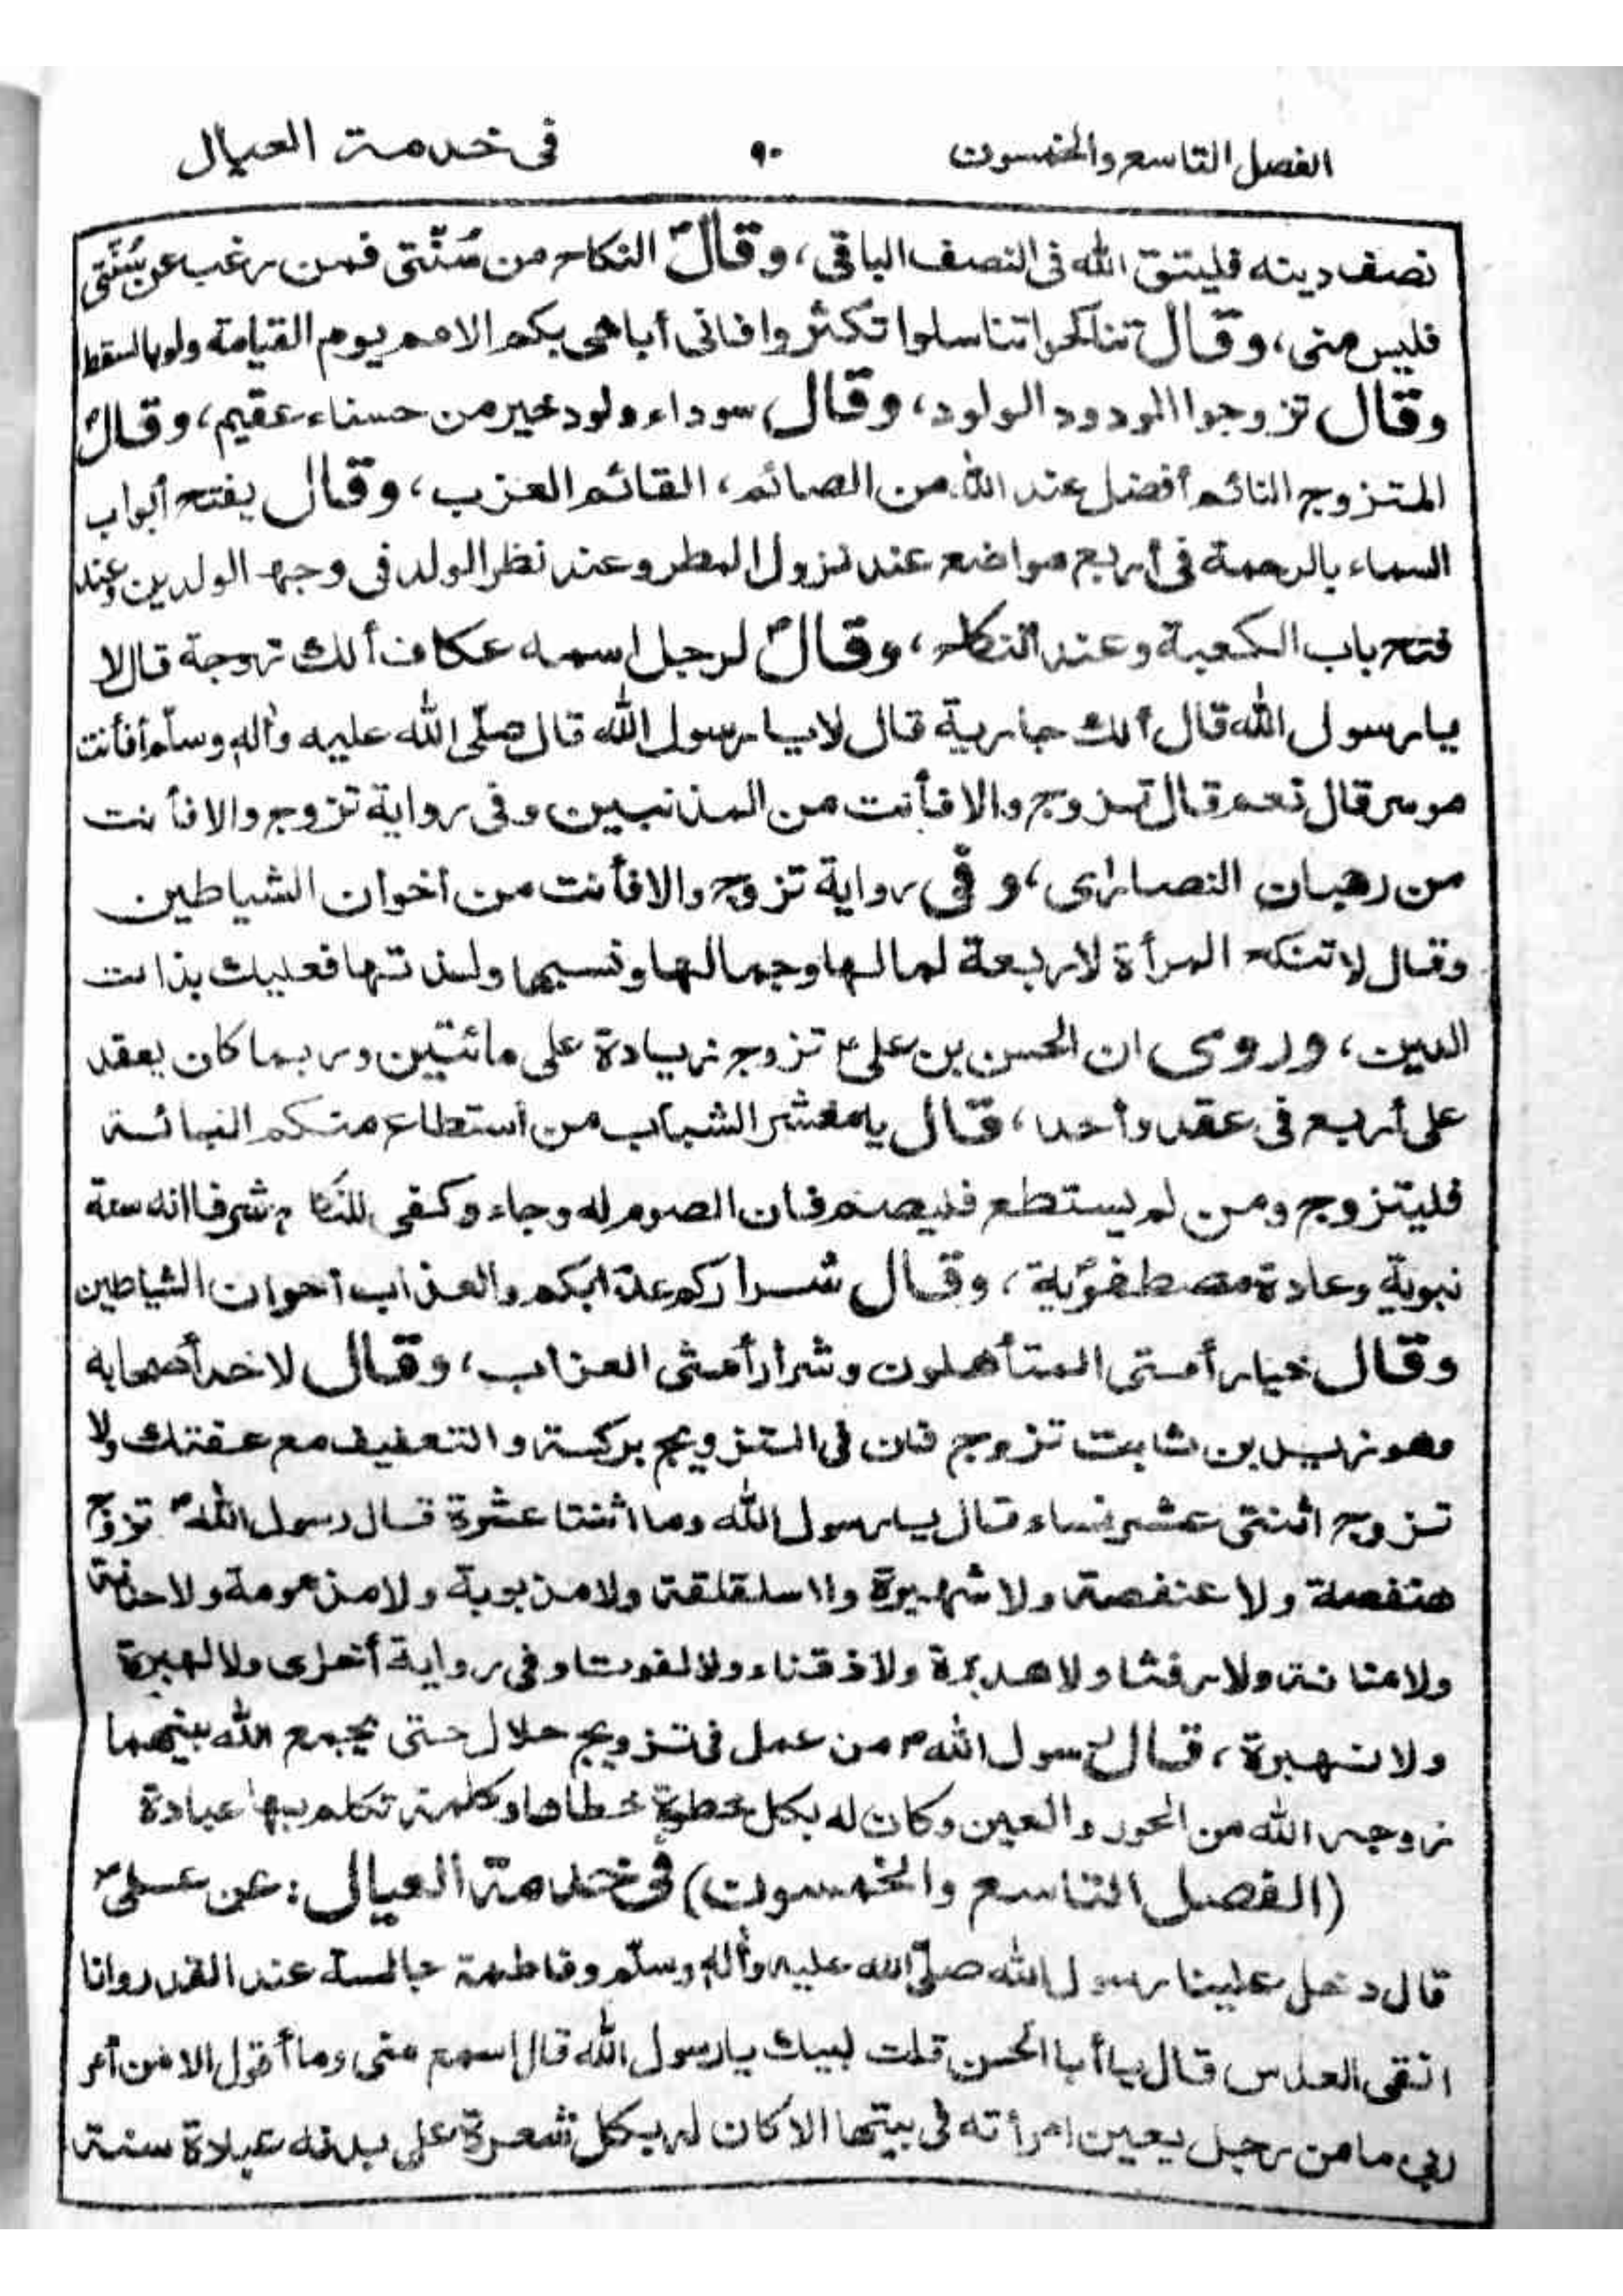 الفصل التاسع والخمسون ٩٠ فى خدمة العيال
نصف دينه فليتق الله فى النصف الباقى، وقالؐ النكاح من سُنّتى فمن رغب عن سُنّتى
فليس منى، وقال تناكحوا تناسلوا تكثروا فانى أباهى بكم الامم يوم القيامة ولو بالسقط
وقال تزوجوا المودود الولود، وقال، سوداء ولود خير من حسناء عقيم، وقالؐ
المتزوج النائم أفضل عند الله من الصائم، القائم العزب، وقال يفتح أبواب
السماء بالرحمة فى أربع مواضع عند نزول المطر وعند نظر الولد فى وجه الولدين وعند
فتح باب الكعبة وعند النكاح، وقالؐ لرجل اسمه عكاف ألك زوجة قال لا
يا رسول الله قال ألك جارية قال لا يا رسول الله قال صلّى الله عليه وآله وسلّم أفأنت
موسر قال نعم قال تزوج والا فأنت من المذنبين وفى رواية تزوج والا فأنت
من رهبان النصارى، وفى رواية تزوج والا فأنت من أخوان الشياطين
وقال لا تنكح المرأة لاربعة لمالها وجمالها ونسبها ولذتها فعليك بذات
الدين، وروى ان الحسن بن على ع تزوج زيادة على مائتين وربما كان يعقد
على أربع فى عقد وأحد، قال يا معشر الشباب من أستطاع منكم البائة
فليتزوج ومن لم يستطع فليصم فان الصوم له وجاء وكفى للنكاح شرفا انه سنة
نبوية وعادة مصطفوّية، وقال شراركم عذابكم والعذاب أخوان الشياطين
وقال خيار أمتى المتأهلون وشرار أمتى العزاب، وقال لاحد أصحابه
وهو زيد بن ثابت تزوج فان فى التزويج بركة والتعفيف مع عفتك ولا
تزوج اثنتى عشر نساء قال يا رسول الله وما اثنتا عشرة قال رسول اللهؐ تزوّج
هنفصة ولا عنفصة ولا شهبرة ولا سلقلقة ولا مذبوبة ولا مذمومة ولا حنانة
ولا منانة ولا رفثا ولا هدبرة ولا ذقناء ولا لفوتا وفى رواية أخرى ولا لهبرة
ولا نهبرة، قال رسول اللهؐ من عمل فى تزويج حلال حتى يجمع الله بينهما
زوجه الله من الحور والعين وكان له بكل خطوة خطاها وكلمة تكلم بها عبادة
(الفصل التاسع والخمسون) فى خدمة العيال: عن علىؑ
قال دخل علينا رسول الله صلّى الله عليه وآله وسلّم وفاطمة جالسة عند القدر وانا
انقى العدس قال يا أبا الحسن قلت لبيك يا رسول الله قال اسمع منى وما أقول الا من أمر
ربى ما من رجل يعين امرأته فى بيتها الا كان له بكل شعرة على بدنه عبادة سنة